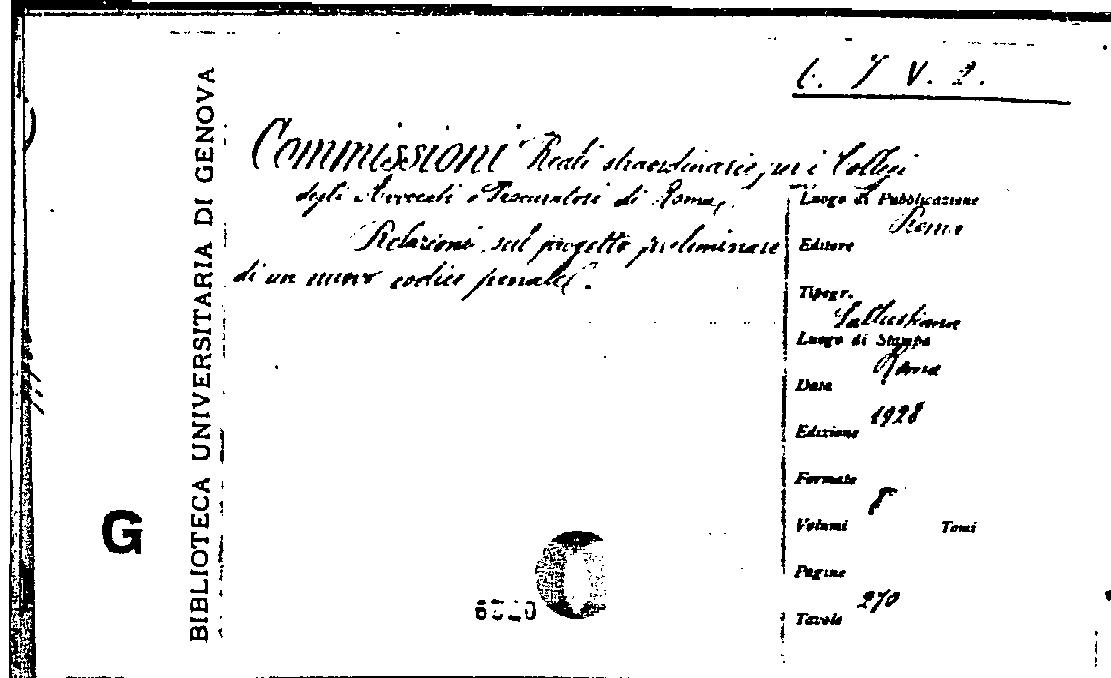 C. J V. 2.
BIBLIOTECA UNIVERSITARIA DI GENOVA
Commissioni Reali straordinarie per i Collegi
degli Avvocati e Procuratori di Roma.
Relazioni sul progetto preliminare
di un nuovo codice penale.
Luogo di Pubblicazione
Roma
Editore
Tipogr.
Sallustiana
Luogo di Stampa
Roma
Data
1928
Edizione
Formato
8
Volumi Tomi
Pagine
270
Tavole
G